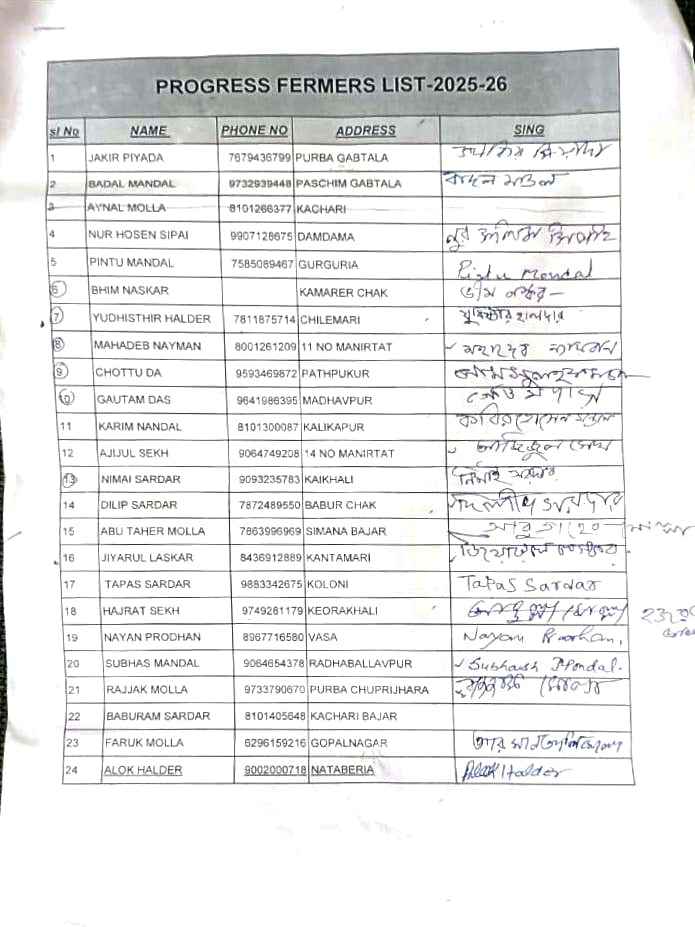 PROGRESS FERMERS LIST-2025-26
sl No NAME PHONE NO ADDRESS SING
1 JAKIR PIYADA 7679436799 PURBA GABTALA
2 BADAL MANDAL 9732939448 PASCHIM GABTALA বাদল মণ্ডল
3 AYNAL MOLLA 8101266377 KACHARI
4 NUR HOSEN SIPAI 9907128675 DAMDAMA নুর
5 PINTU MANDAL 7585069467 GURGURIA Pintu Mondal
6 BHIM NASKAR KAMARER CHAK ভীম নস্কর
7 YUDHISTHIR HALDER 7811875714 CHILEMARI যুধিষ্টীর হালদার
8 MAHADEB NAYMAN 8001261209 11 NO MANIRTAT মহাদেব
9 CHOTTU DA 9593469872 PATHPUKUR
10 GAUTAM DAS 9641986395 MADHAVPUR গৌতম দাস
11 KARIM NANDAL 8101300087 KALIKAPUR
12 AJIJUL SEKH 9064749208 14 NO MANIRTAT আজিজুল সেখ
13 NIMAI SARDAR 9093235783 KAIKHALI নিমাই সরদার
14 DILIP SARDAR 7872489550 BABUR CHAK দিলীপ সরদার
15 ABU TAHER MOLLA 7863996969 SIMANA BAJAR আবু তাহের মোল্লা
16 JIYARUL LASKAR 8436912889 KANTAMARI
17 TAPAS SARDAR 9883342675 KOLONI Tapas Sardar
18 HAJRAT SEKH 9749281179 KEORAKHALI
19 NAYAN PRODHAN 8967716580 VASA Nayan
20 SUBHAS MANDAL 9064654378 RADHABALLAVPUR Subhash Mondal.
21 RAJJAK MOLLA 9733790670 PURBA CHUPRIJHARA
22 BABURAM SARDAR 8101405648 KACHARI BAJAR
23 FARUK MOLLA 6296159216 GOPALNAGAR
24 ALOK HALDER 9002000718 NATABERIA Alok Halder